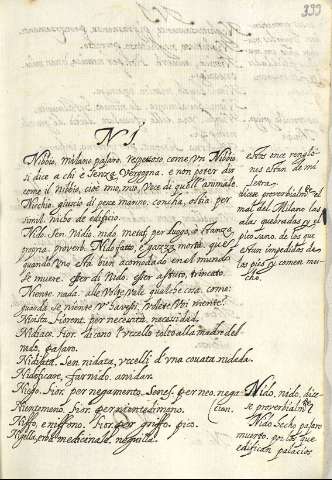 333
N I
Nibbio, milano pajaro. rispettoso come un Nibbio
si dice a chi è senza Vergogna. e non poter dir
come il nibbio, cioè mio, mio, voce di quell'animale.
Nicchio, guscio di pesce marino. concha, ostia per
simil. nicho de edificio.
Nido. Sen. Nidio. nido. metaf. per luogo, o stanza
propria. proverb. Nido fatto, e gazza morta. quel
quando uno sta bien acomodado en el mundo
se muere. esser di Nido. esser astuto, trincato.
Niente. nada. alle Volte vale qualche cosa. come
quando se niente v'havessi. volete voi niente?
Nidiace. Fior. dicono l'uccello tolto alla madre del
nido. pajaro.
Nidiata. Sen. nidata, uccelli d'una covata. nidada.
Nidificare, far nido. anidar.
Niego. Fior. per negamento. Sanes. per neo. nega
cion.
Nientemeno. Fior. per nientedimeno.
Niffo, e niffolo. Fior. per griffo.
Nigella, erba medicinale. neguilla.
estos once renglo
nes estan de mi
letra.
dicese proverbialm.te el
mal del Milano las
alas quebradas y el
pico sano. de los que
estan impedidos de
los pies y comen mu
cho.
Nido. nido. dice
se proverbialm.te
Nido hecho pajaro
muerto. por los que
edifican palacios